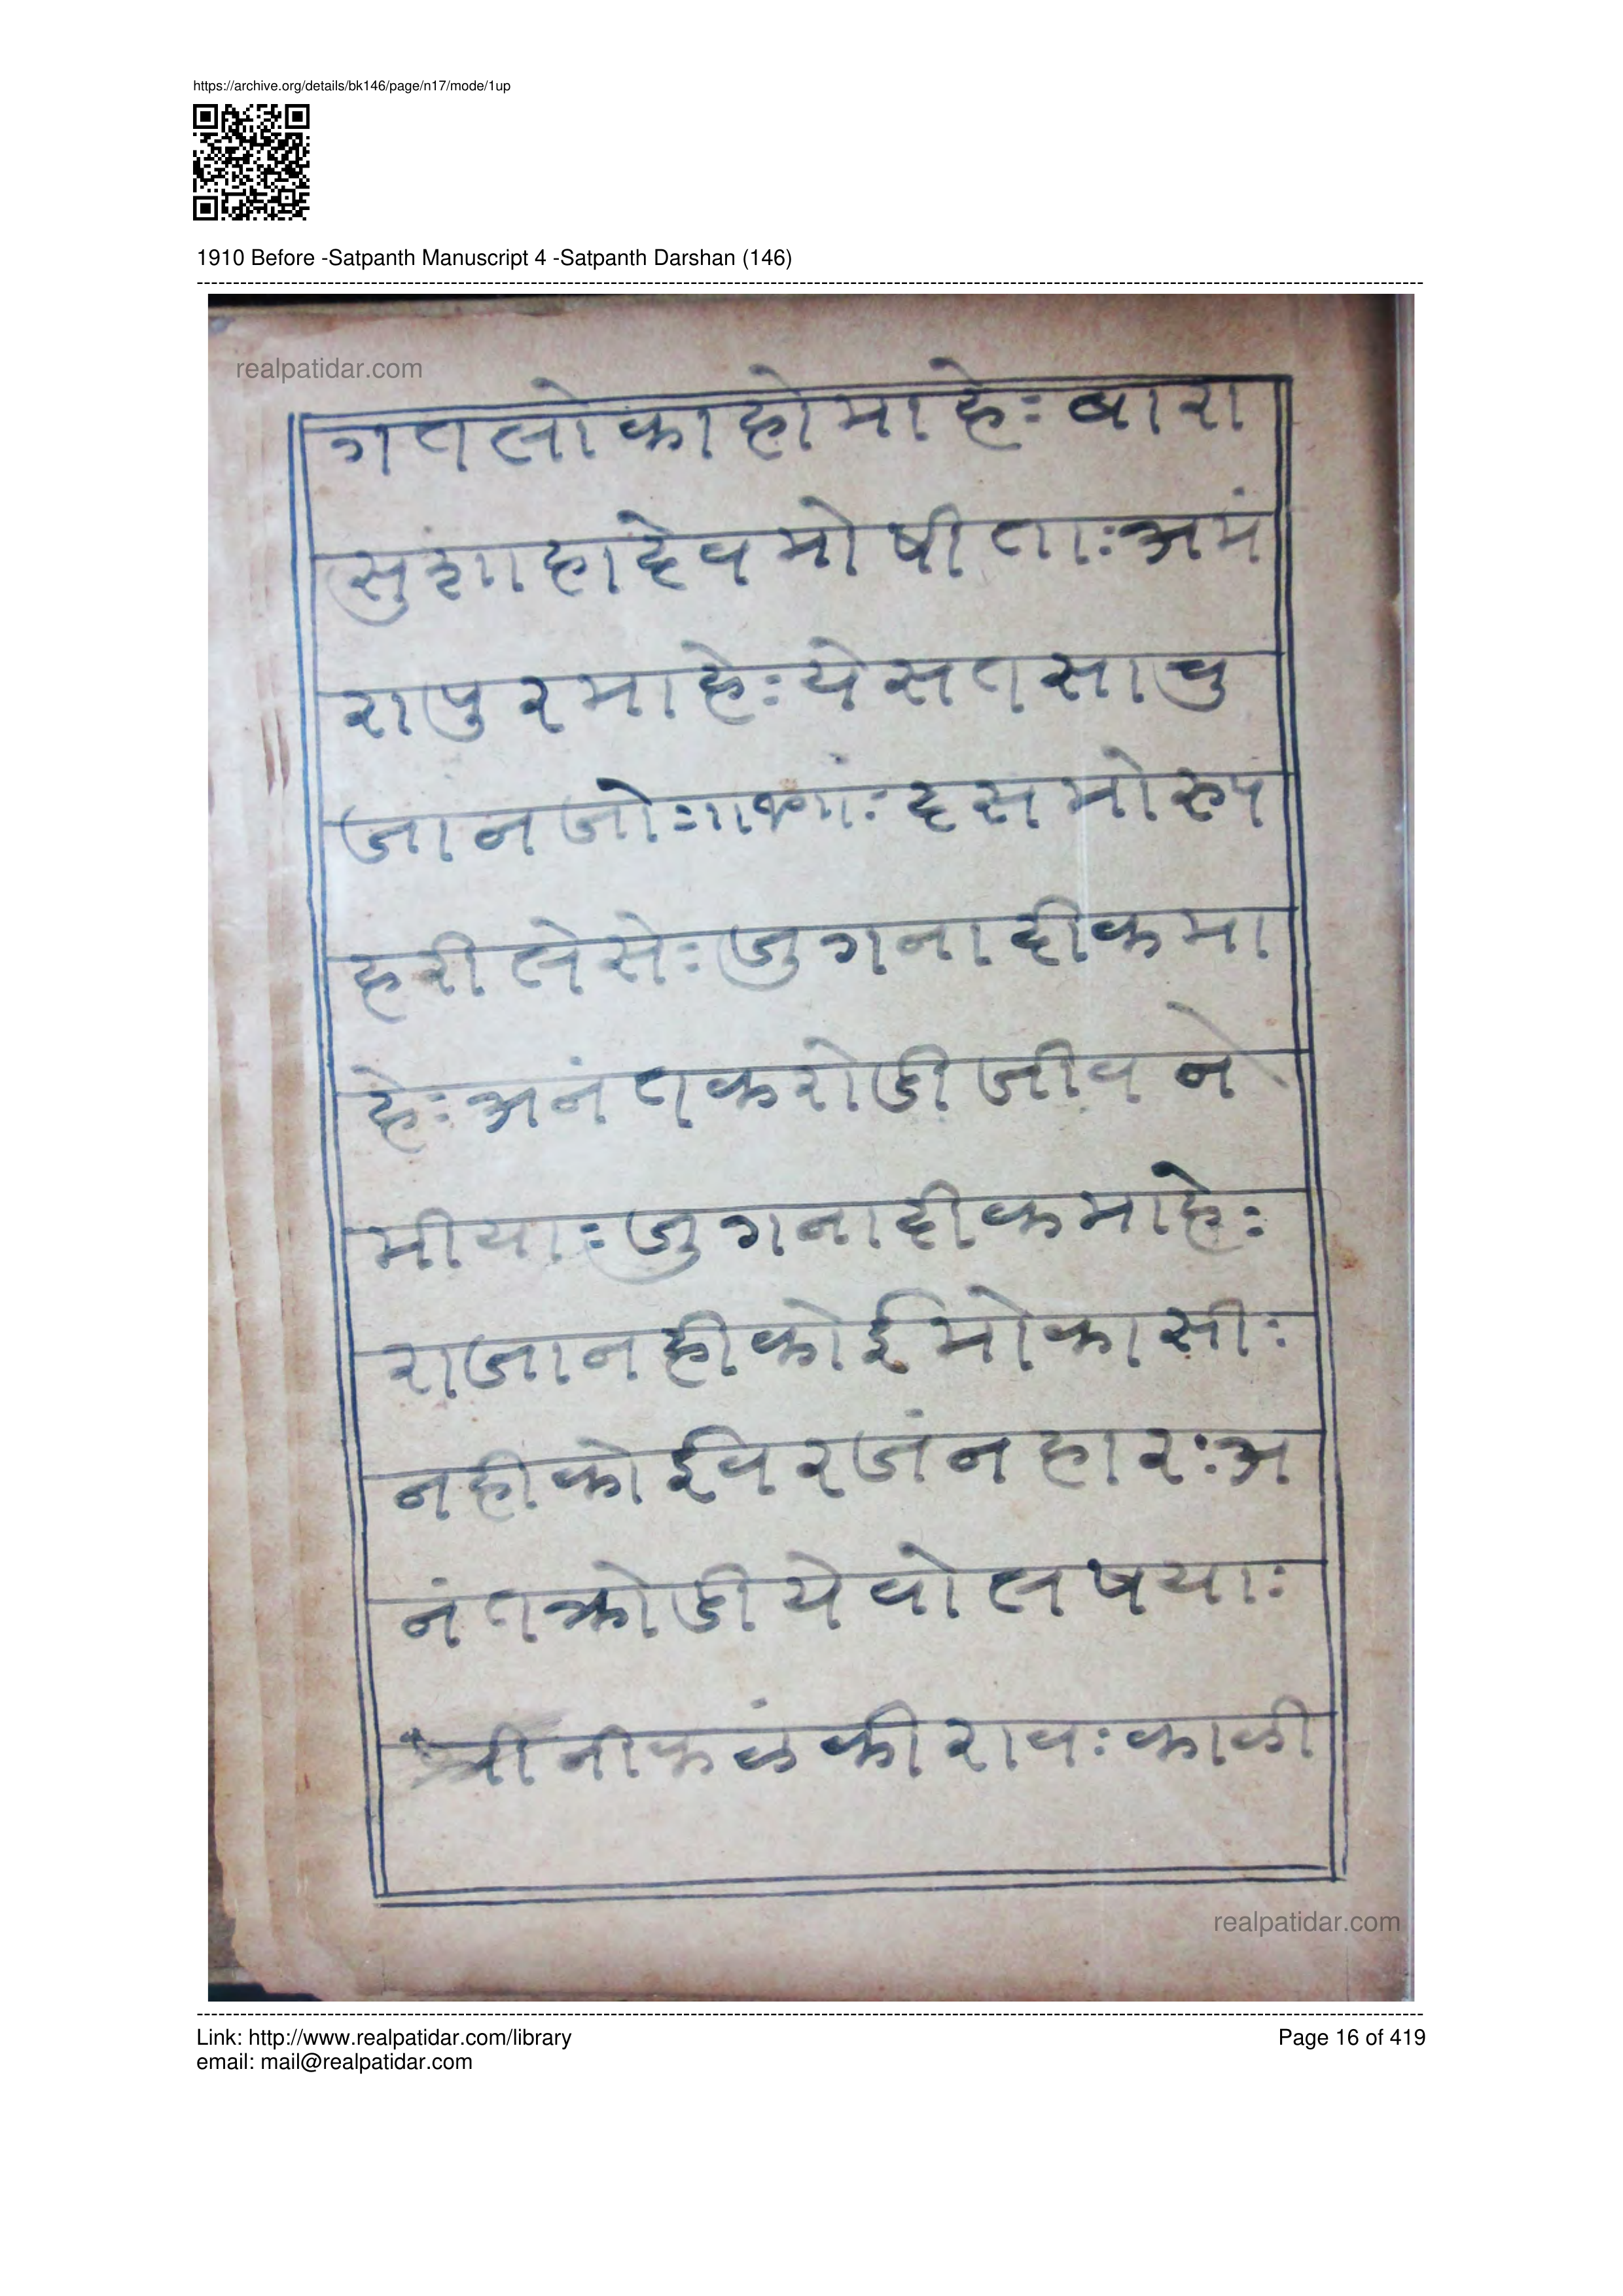 https://archive.org/details/bk146/page/n17/mode/1up
1910 Before -Satpanth Manuscript 4 -Satpanth Darshan (146)
realpatidar.com
गतलोकाहोमाहेः बारा
सुंशाहादेवमोषीताःअमं
रापुरमाहेःयेसतसाचु
जानजोः दसमोरुप
हरीलेसेःजुगनादीकमा
हेःअनंतकरोडीजीवने
मीयाःजुगनादीकमाहेः
राजानहीकोईमोकासीः
नहीकोईवरजंनहारःअ
नंतक्रोडीयेवोलषयाः
श्रीनीकळंकीरावःकाळी
realpatidar.com
Link: http://www.realpatidar.com/library
Page 16 of 419
email: mail@realpatidar.com